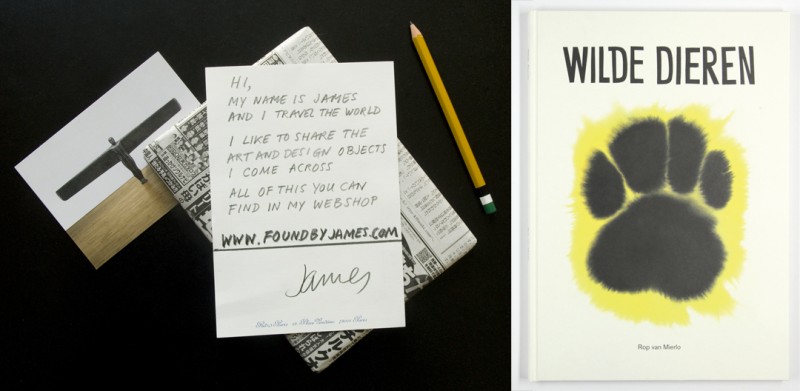 HI,
MY NAME IS JAMES
AND I TRAVEL THE WORLD
I LIKE TO SHARE THE
ART AND DESIGN OBJECTS
I COME ACROSS
ALL OF THIS YOU CAN
FIND IN MY WEBSHOP
WWW.FOUNDBYJAMES.COM
James
WILDE DIEREN
Rop van Mierlo